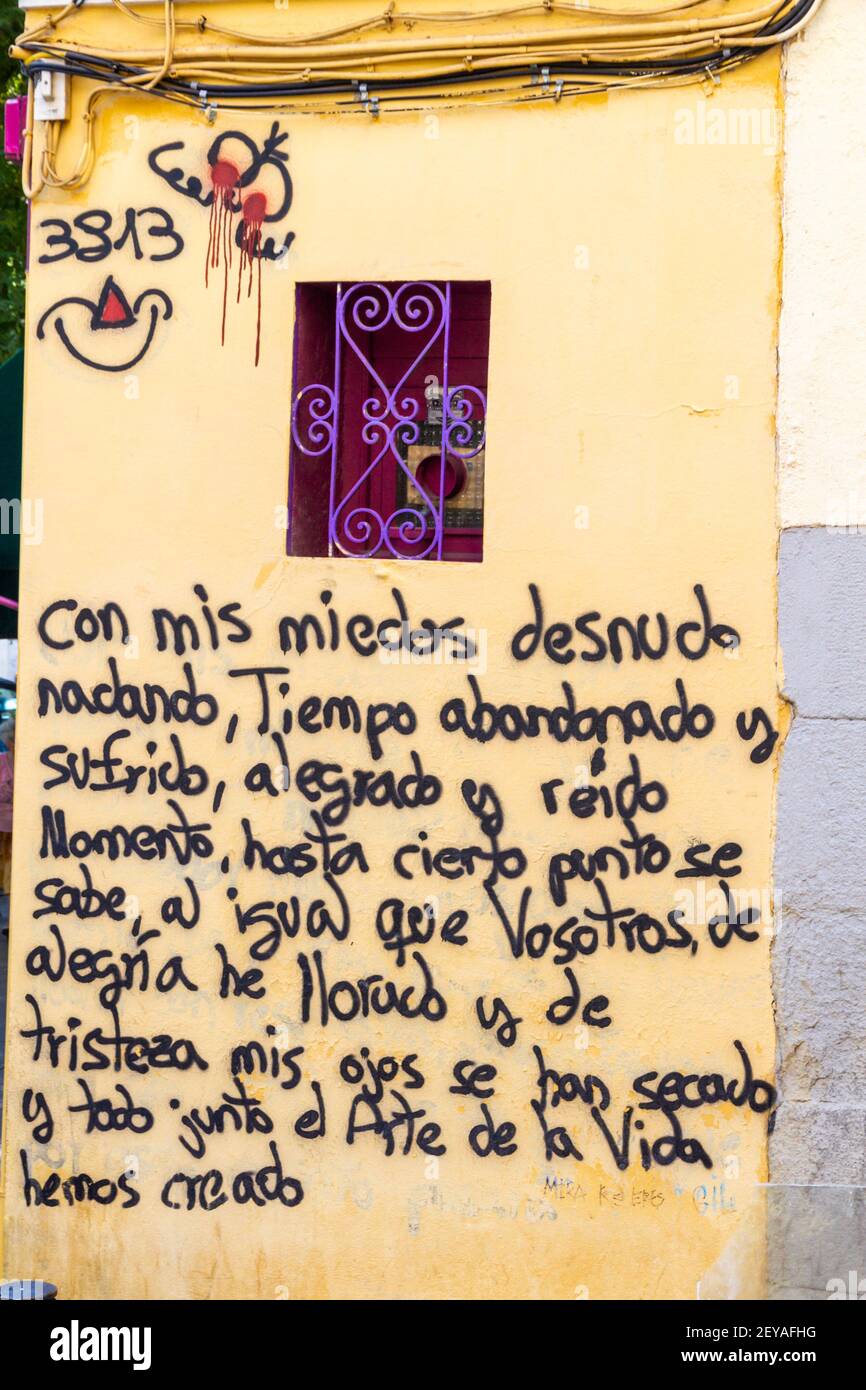 3S13
con mis miedos desnudo
nadando, Tiempo abandonado y
sufrido, alegrado y réido
Momento, hasta cierto punto se
sabe, al igual que Vosotros, de
alegría he llorado y de
tristeza mis ojos se han secado,
y todo junto el Arte de la Vida
hemos creado
MIRA
alamy
Image ID: 2EYAFHG
www.alamy.com